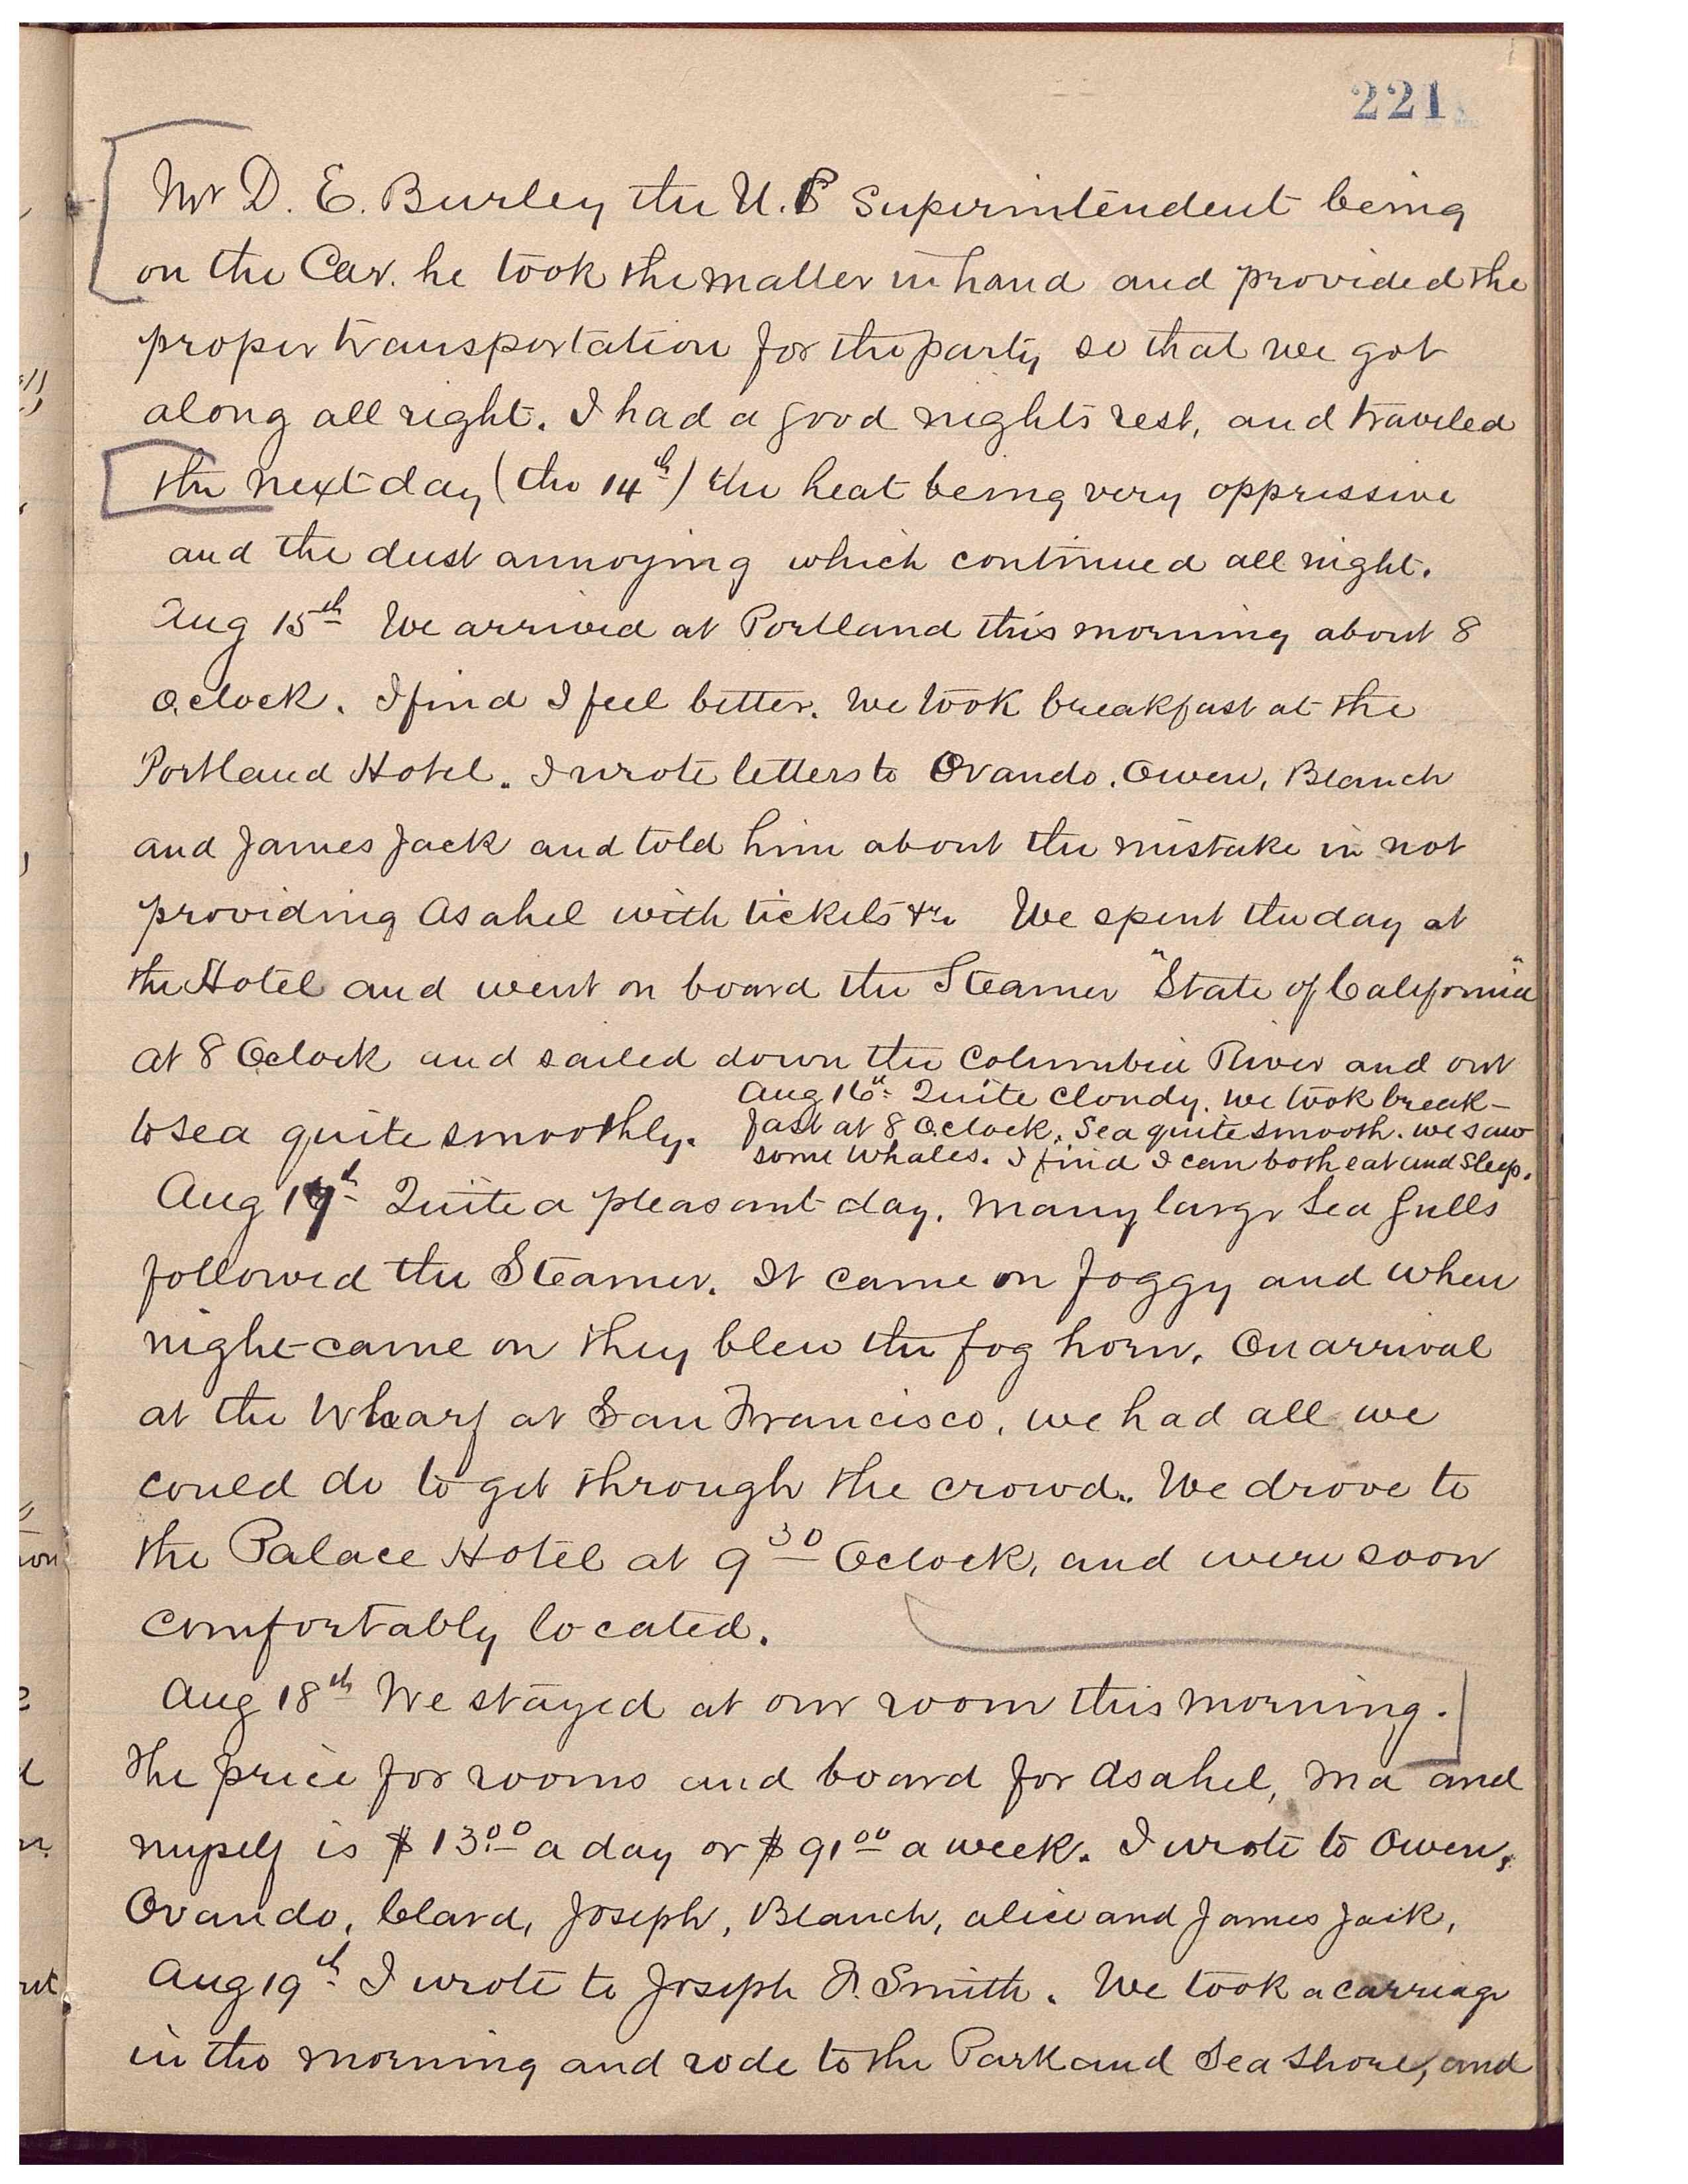 221
Mr D. E. Burley the U. P Superintendent being
on the Car. he took the matter in hand and provided the
proper transportation for the party so that we got
along all right. I had a good nights rest, and traveled
the next day (the 14th) the heat being very oppressive
and the dust annoying which continued all night.
Aug 15th We arrived at Portland this morning about 8
Oclock. I find I feel better. We took breakfast at the
Portland Hotel. I wrote letters to Ovando, Owen, Blanch
and James Jack and told him about the mistake in not
providing Asahel with tickets &c. We spent the day at
the Hotel and went on board the Steamer "State of California"
at 8 Oclock and sailed down the Columbia River and out
to sea quite smoothly.
Aug 16th Quite cloudy. We took break-
fast at 8 Oclock. Sea quite smooth. we saw
some Whales. I find I can both eat and sleep.
Aug 17th Quite a pleasant day. Many large Sea Gulls
followed the Steamer. It came on foggy and when
night came on they blew the fog horn. On arrival
at the Wharf at San Francisco, we had all we
could do to get through the crowd.. We drove to
the Palace Hotel at 9 30 Oclock, and were soon
comfortably located.
Aug 18th We stayed at our room this morning.
The price for rooms and board for Asahel, Ma and
myself is $13.00 a day or $91 00 a week. I wrote to Owen,
Ovando, Clara, Joseph, Blanch, Alice and James Jack,
Aug 19th I wrote to Joseph F. Smith. We took a carriage
in the morning and rode to the Park and Sea Shore, and